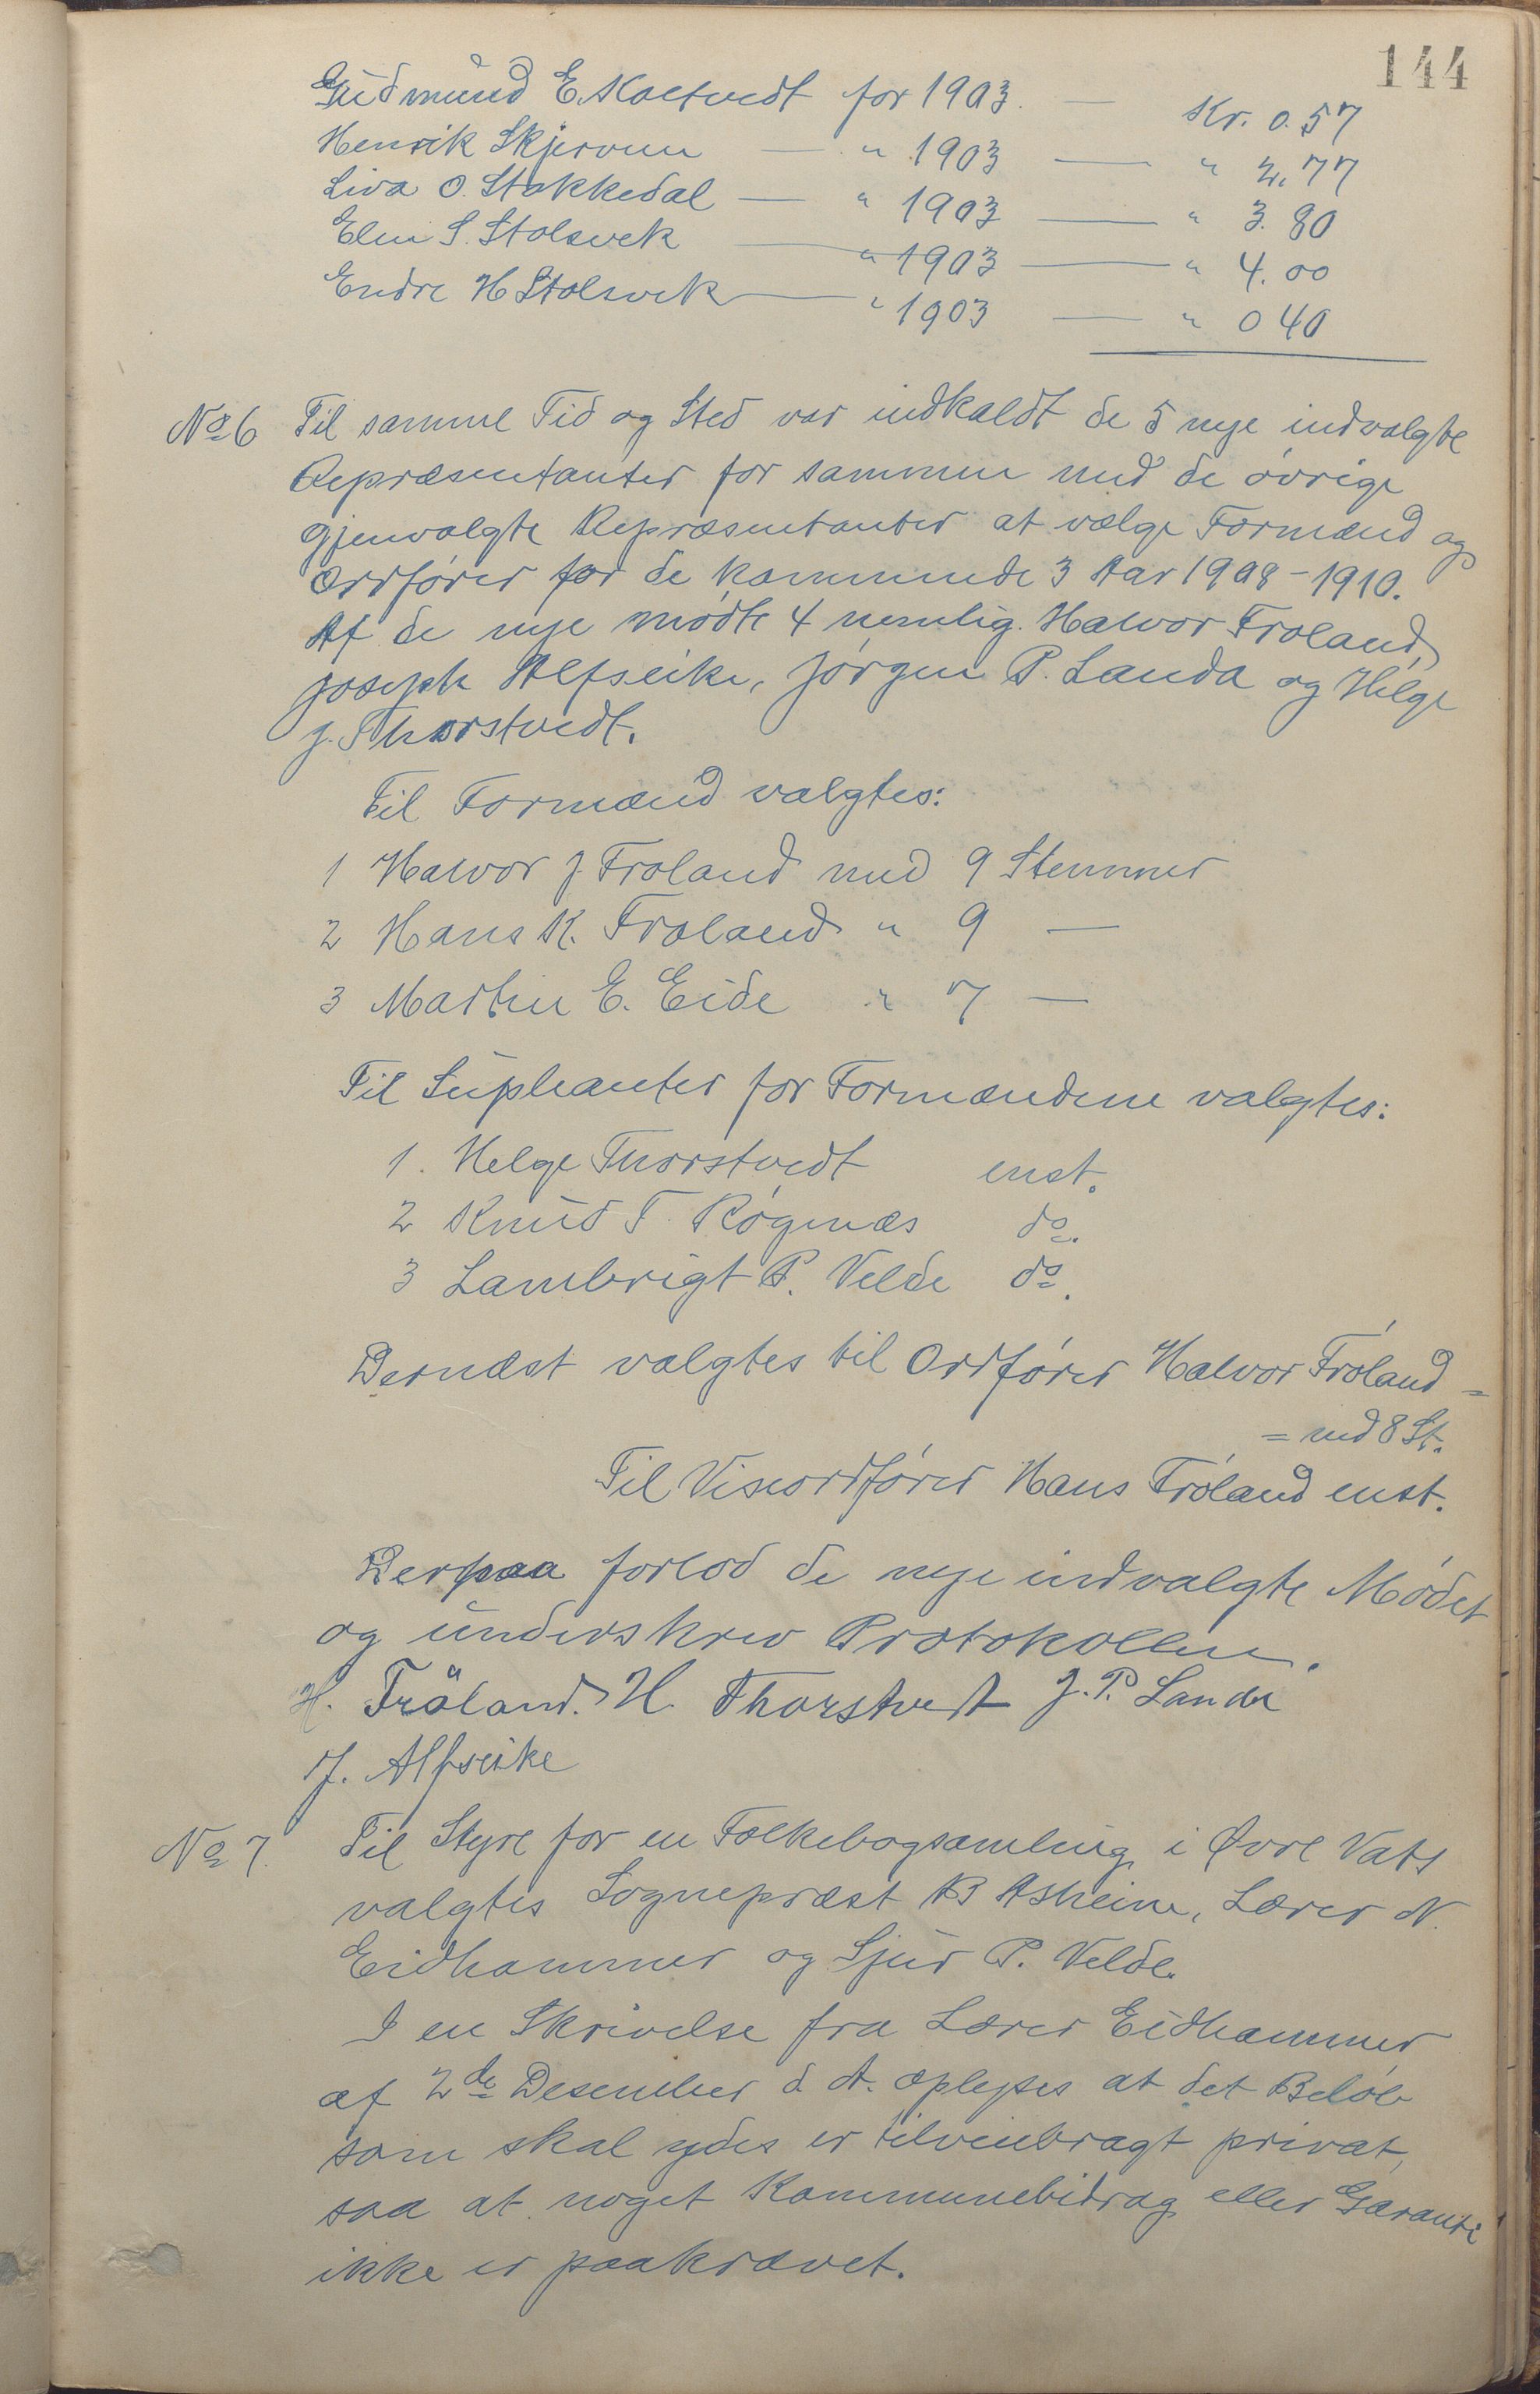 144
Gudmund E. Koltvedt for 1903. — Kr. 0.57
Henrik Skjerven — " 1903 — " 2.77
Siva O. Stakkedal — " 1903 — " 3.80
Elen S. Stolsvek — " 1903 — " 4.00
Endre H Stolsvek — " 1903 — " 0 40
No 6 Til samme Tid og Sted var indkaldt de 5 nye indvalgte
Repræsentanter for sammen med de øvrige
gjenvalgte Repræsentanter at vælge Formænd og
Ordfører for de kommende 3 Aar 1908-1910.
Af de nye mødte 4 nemlig. Halvor Frøland,
Joseph Alfseike, Jørgen P. Landa og Helge
J. Thorstvedt.
Til Formænd valgtes:
1 Halvor J. Frøland med 9 Stemmer
2 Hans K. Frøland " 9 —
3 Martin E. Eide " 7 —
Til Supleanter for Formændene valgtes:
1. Helge Thorstvedt enst.
2 Knud T. Røgenæs do.
3 Lambrigt P. Velde do.
Dernæst valgtes til Ordfører Halvor Frøland =
= med 8 St.
Til Viseordfører Hans Frøland enst.
Derpaa forlod de nye indvalgte Mødet
og underskrev Protokollen.
H. Fröland. H. Thorstvedt J. P. Landa
J. Alfseike
No 7. Til Styre for en Folkebogsamling i Øvre Vats
valgtes Sogneprest B Asheim, Lærer N.
Eidhammer og Sjur P. Velde.
I en Skrivelse fra Lærer Eidhammer
af 2de Desember d. A. oplyses at det Beløb
som skal ydes er tilveiebragt privat,
saa at noget Kommunebidrag eller Garanti
ikke er paakrævet.